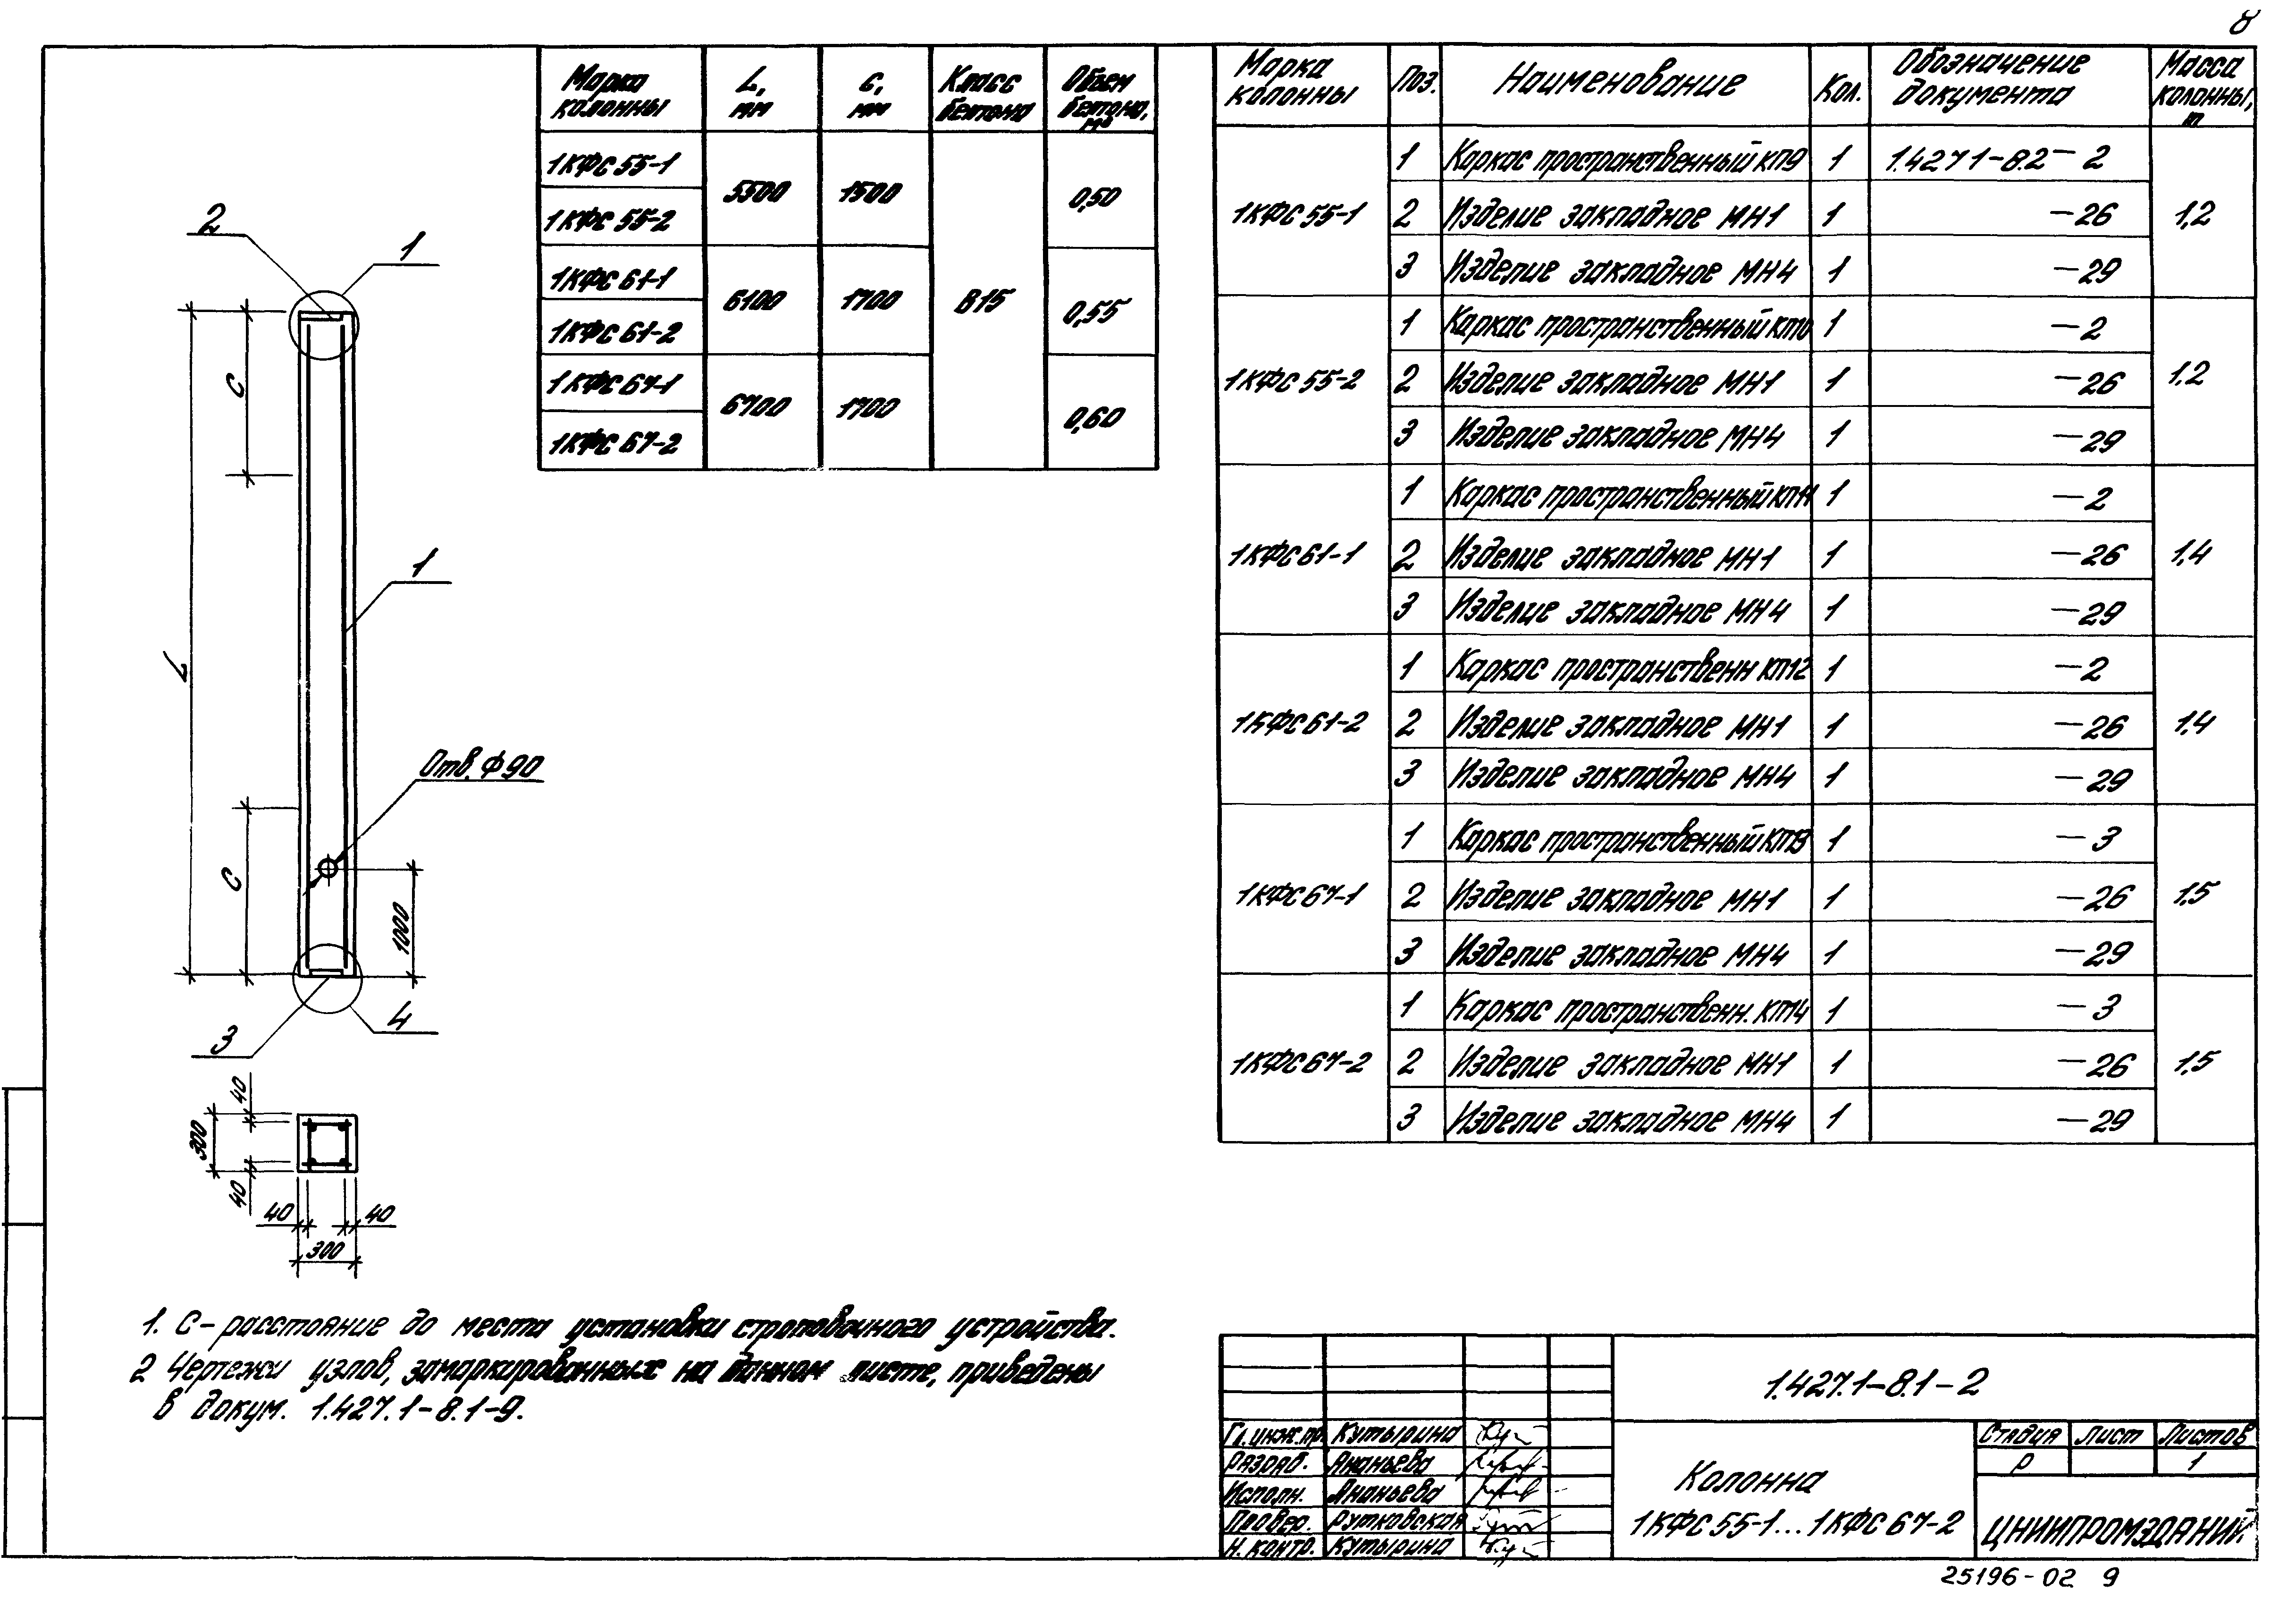 8
Марка колонны L, мм C, мм Класс бетона Объем бетона, м³
1КФС 55-1 5500 1500 В15 0,50
1КФС 55-2
1КФС 61-1 6100 1700 0,55
1КФС 61-2
1КФС 67-1 6700 1700 0,60
1КФС 67-2
Марка колонны Поз. Наименование Кол. Обозначение документа Масса колонны, т
1КФС 55-1 1 Каркас пространственный КП9 1 1.427.1-8.2-2 1,2
2 Изделие закладное МН1 1 -26
3 Изделие закладное МН4 1 -29
1КФС 55-2 1 Каркас пространственный КП10 1 -2 1,2
2 Изделие закладное МН1 1 -26
3 Изделие закладное МН4 1 -29
1КФС 61-1 1 Каркас пространственный КП11 1 -2 1,4
2 Изделие закладное МН1 1 -26
3 Изделие закладное МН4 1 -29
1КФС 61-2 1 Каркас пространственн КП12 1 -2 1,4
2 Изделие закладное МН1 1 -26
3 Изделие закладное МН4 1 -29
1КФС 67-1 1 Каркас пространственный КП13 1 -3 1,5
2 Изделие закладное МН1 1 -26
3 Изделие закладное МН4 1 -29
1КФС 67-2 1 Каркас пространственн. КП14 1 -3 1,5
2 Изделие закладное МН1 1 -26
3 Изделие закладное МН4 1 -29
2
1
C
L
1
Отв. Ф 90
C
1000
3
4
40
300
40
40
40
300
1. C - расстояние до места установки строповочного устройства.
2 Чертежи узлов, замаркированных на данном листе, приведены
в докум. 1.427.1-8.1-9.
1.427.1-8.1-2
Гл.инж.пр. Кутырина
Разраб. Ананьева
Исполн. Ананьева
Провер. Рутковская
Н. контр. Кутырина
Колонна
1КФС 55-1...1КФС 67-2
Стадия Лист Листов
Р 1
ЦНИИПРОМЗДАНИЙ
25196-02 9